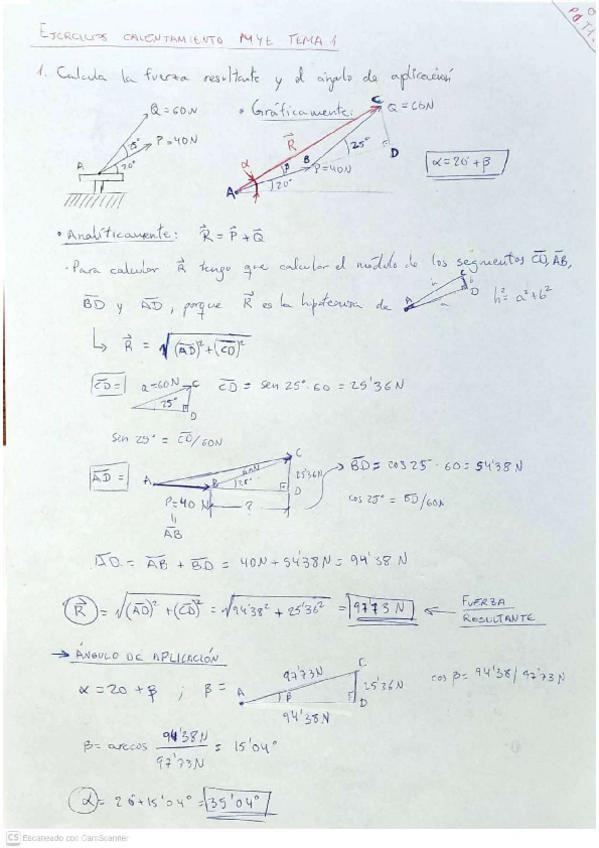 EJERCICIOS CALENTAMIENTO MYE TEMA 1
1. Calcula la fuerza resultante y el ángulo de aplicación
Q = 60N
25°
P = 40N
20°
A
• Gráficamente:
C
Q = 60N
R
α
β
B
25°
D
P = 40N
A
20°
α = 20 + β
• Analíticamente: R = P + Q
- Para calcular R tengo que calcular el módulo de los segmentos CD, AB,
BD y AD, porque R es la hipotenusa de
A
h
C
b
D
a
h² = a² + b²
↳ R = √(AD)² + (CD)²
CD =
a = 60N
C
25°
D
CD = sen 25° · 60 = 25'36 N
sen 25° = CD/60N
AD =
A
B
60N
25°
C
25'36N
D
P = 40 N
AB
?
→ BD = cos 25 · 60 = 54'38 N
cos 25° = BD/60N
AD = AB + BD = 40N + 54'38N = 94'38 N
R = √(AD)² + (CD)² = √94'38² + 25'36² = 97'73 N ← FUERZA
RESULTANTE
→ ÁNGULO DE APLICACIÓN
α = 20 + β ; β =
A
97'73N
β
94'38N
C
25'36N
D
cos β = 94'38/97'73N
β = arccos 94'38N / 97'73N = 15'04°
α = 20 + 15'04° = 35'04°
CS Escaneado con CamScanner